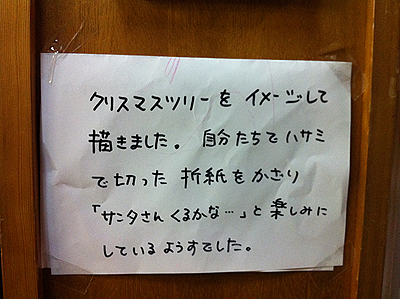 クリスマスツリーを イメージして
描きました。 自分たちでハサミ
で切った 折紙をかざり
「サンタさん くるかな…」と 楽しみに
しているようすでした。